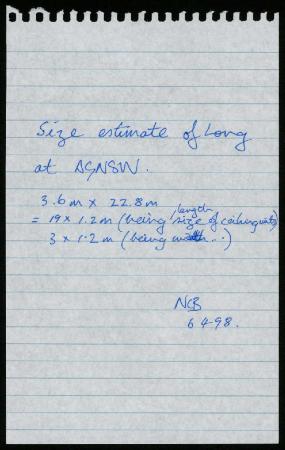 Size estimate of Long
at AGNSW.
3.6m × 22.8m
= 19 × 1.2m (being length size of ceiling units)
3 × 1.2m (being width..)
NCB
6 4-98.